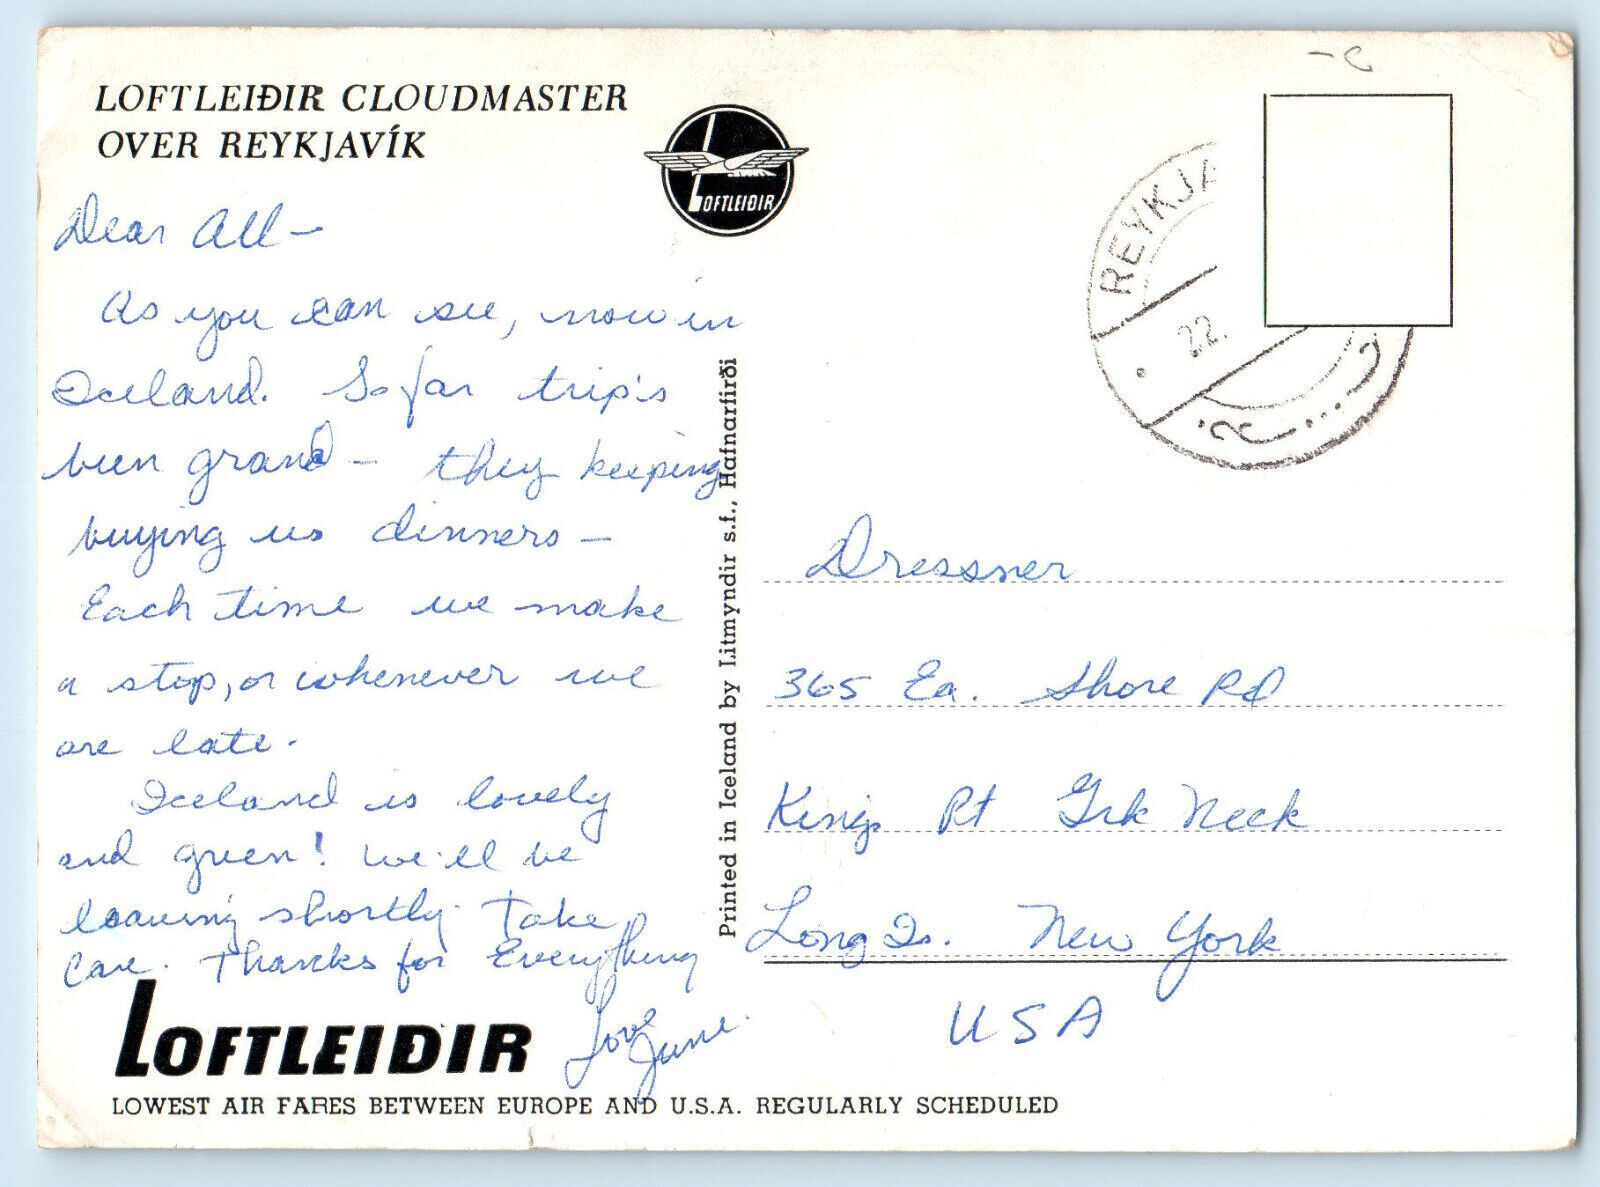 LOFTLEIÐIR CLOUDMASTER
OVER REYKJAVÍK
LOFTLEIÐIR
REYKJA
22.
Dear All -
As you can see, now in
Iceland. So far trip's
been grand - they keeping
buying us dinners -
Each time we make
a stop, or whenever we
are late.
Iceland is lovely
and green! We'll be
leaving shortly. Take
Care. Thanks for Everything
Love
June.
Printed in Iceland by Litmyndir s.f., Hafnarfirði
Dressner
365 Ea. Shore Rd
Kings Pt Grk Neck
Long Is. New York
USA
LOFTLEIÐIR
LOWEST AIR FARES BETWEEN EUROPE AND U.S.A. REGULARLY SCHEDULED